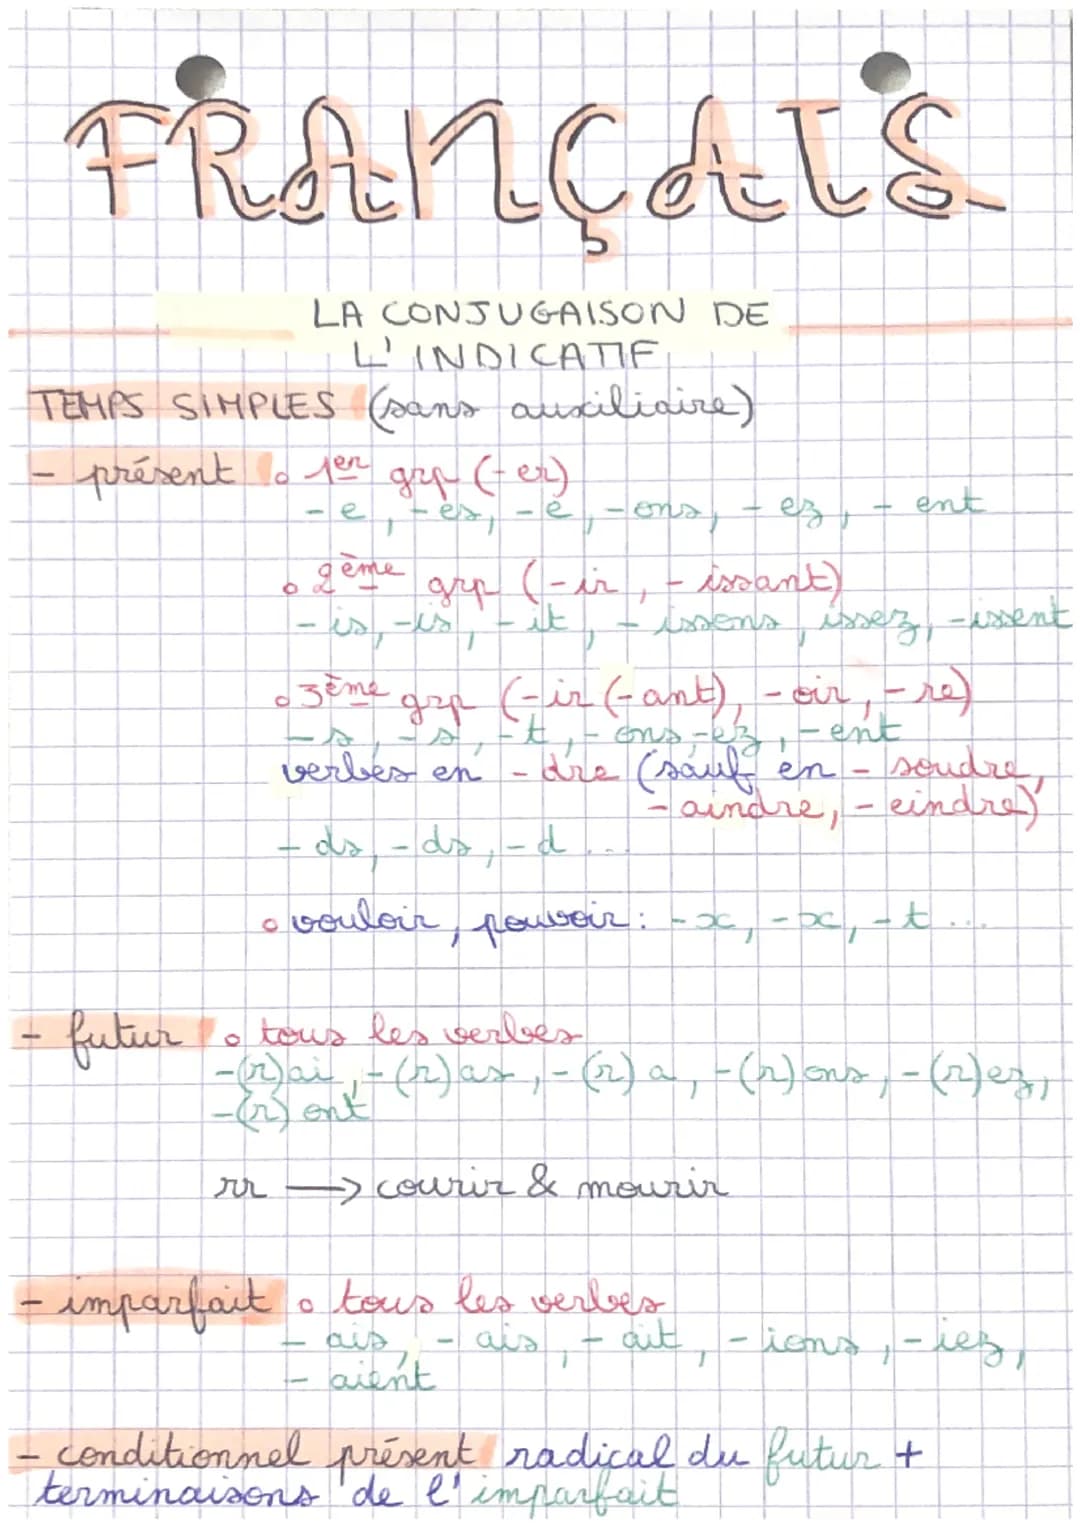 FRANÇAIS
LA CONJUGAISON DE
L'INDICATIF
TEMPS SIMPLES (sans auxiliaire)
- présent o 1er grp (-er)
-e, -es, -e, -ons, -ez, -ent
o 2ème grp (-ir, -issant)
-is, -is, -it, -issons, issez, -issent
o 3ème grp (-ir (-ant), -oir, -re)
-s, -s, -t, -ons, -ez, -ent
verbes en -dre (sauf en -soudre,
-aindre, -eindre)
-ds, -ds, -d ...
o vouloir, pouvoir : -x, -x, -t ...
- futur o tous les verbes
-(r)ai, -(r)as, -(r)a, -(r)ons, -(r)ez,
-(r)ont
rr → courir & mourir
- imparfait o tous les verbes
- ais, - ais, - ait, - ions, - iez,
- aient
- conditionnel présent radical du futur +
terminaisons de l'imparfait